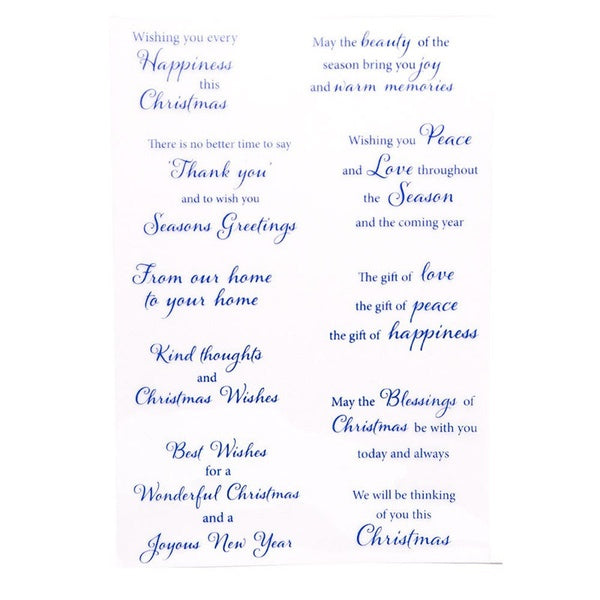 Wishing you every
Happiness
this
Christmas
There is no better time to say
'Thank you'
and to wish you
Seasons Greetings
From our home
to your home
Kind thoughts
and
Christmas Wishes
Best Wishes
for a
Wonderful Christmas
and a
Joyous New Year
May the beauty of the
season bring you joy
and warm memories
Wishing you Peace
and Love throughout
the Season
and the coming year
The gift of love
the gift of peace
the gift of happiness
May the Blessings of
Christmas be with you
today and always
We will be thinking
of you this
Christmas